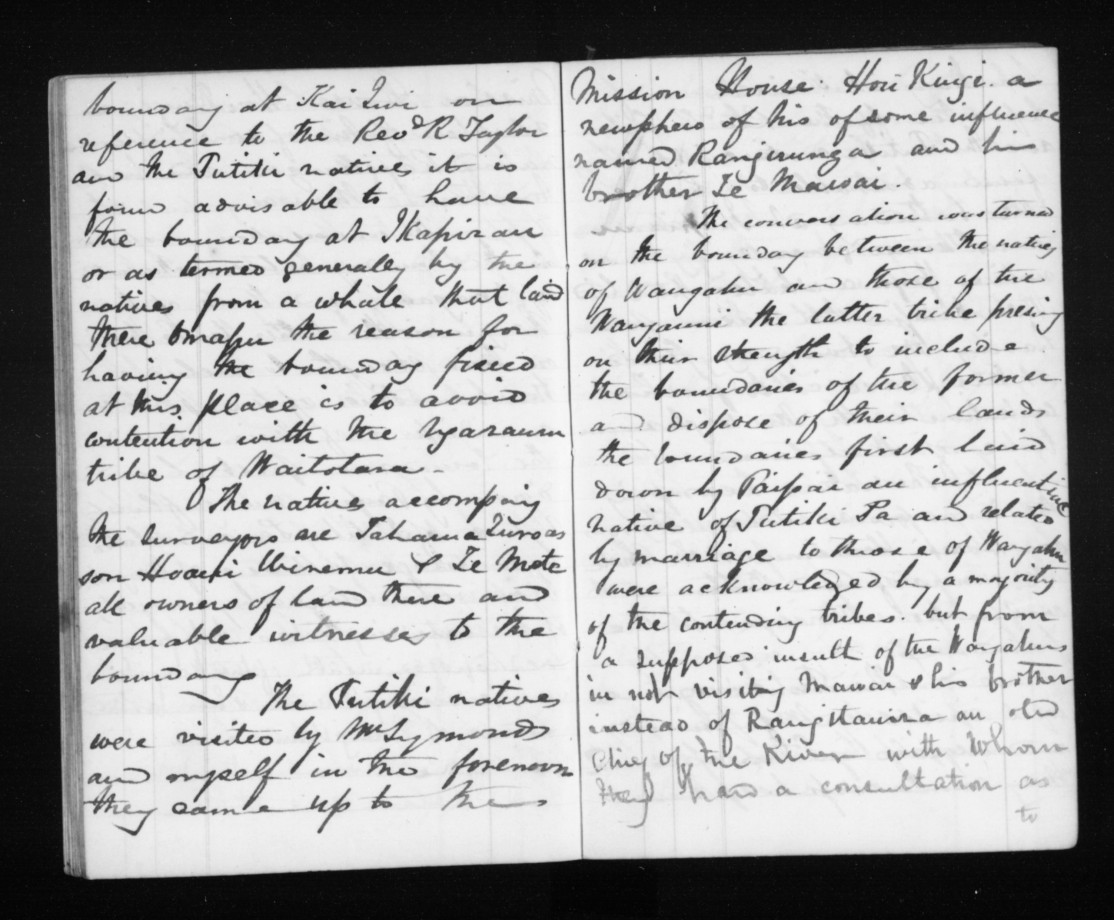 boundary at Kai Iwi on
reference to the Revd R Taylor
and the Tutiki natives it is
found advisable to have
the boundary at
or as termed generally by the
natives from a whale that land
there the reason for
having the boundary fixed
at this place is to avoid
contention with the
tribe of Waitotara -
The natives accompying
the surveyors are
son & Te Mote
all owners of land there and
valuable witnesses to the
boundary
The Tutiki natives
were visited by Mr Symonds
and myself in the forenoon
they came up to the
Mission House Hori Kingi a
newphew of his of some influence
named Rangirunga and his
brother Te Mawai.
The conversation was turned
on the bounday between the natives
of Wangahu and those of the
Wanganui the latter tribe presing
on their strength to include
the boundaries of the former
and dispose of their lands
the boundaries first laid
down by Paipai an influential
native of Tutiki Pa and related
by marriage to those of Wangahu
were acknowledged by a majority
of the contending tribes. but from
a supposed insult of the Wangahus
in not visiting Mawai & his brother
instead of an old
Chief of the River with whom
they had a consultation as
to